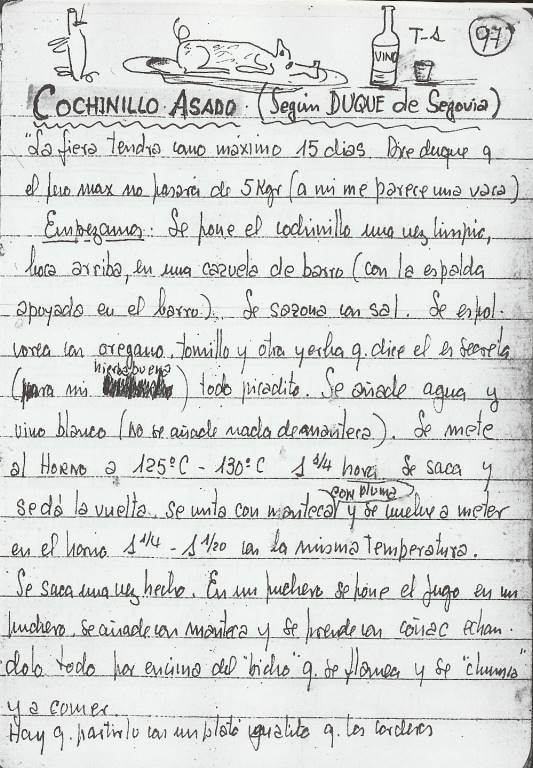 VINO T-1 97
COCHINILLO ASADO. (Según DUQUE de Segovia)
"La fiera tendra como máximo 15 dias Dice duque q
el peso max no pasará de 5Kgr (a mi me parece una vaca)
Empezamos: Se pone el cochinillo una vez limpio,
boca arriba, en una cazuela de barro (con la espalda
apoyada en el barro). Se sazona con sal. Se espol-
vorea con oregano, tomillo y otra yerba q. dice el es secreta
(para mi hierbabuena) todo picadito. Se añade agua y
vino blanco (no se añade nada de manteca). Se mete
al HORNO a 125ºC - 130ºC 1 3/4 hora Se saca y
se dá la vuelta. Se unta con manteca (con pluma) y se vuelve a meter
en el horno 1 1/4 - 1 1/20 con la misma temperatura.
Se saca una vez hecho. En un puchero se pone el jugo en un
puchero, se añade con manteca y se prende con coñac echan-
dolo todo por encima del "bicho" q. se flamea y se "churrusca"
y a comer.
Hay q. partirlo con un plato igualito q. los corderos